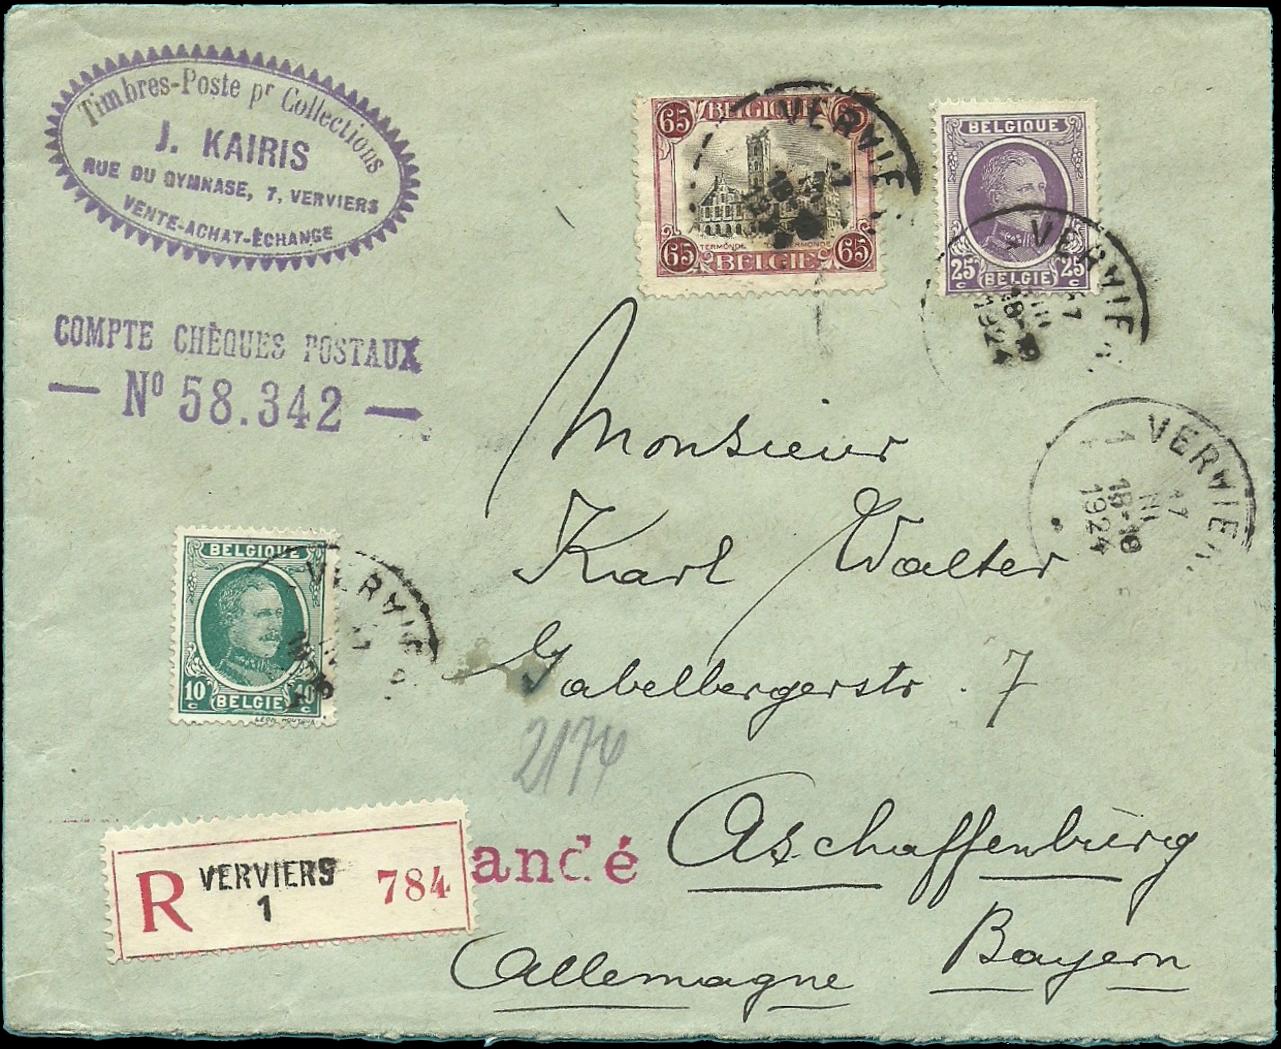 Timbres-Poste pr Collections
J. KAIRIS
RUE DU GYMNASE, 7, VERVIERS
VENTE-ACHAT-ÉCHANGE
COMPTE CHÈQUES POSTAUX
— Nº 58.342 —
65 BELGIQUE 65
TERMONDE
65 BELGIE 65
VERVIE
BELGIQUE
25 c BELGIE 25 c
VERVIE
17
III
18-19
1924
VERVIE
17
III
18-19
1924
Monsieur
Karl Walter
Gabelbergerstr. 7
Aschaffenburg
Bayern
Allemagne
BELGIQUE
10 c BELGIE 10 c
VERVIE
2174
R VERVIERS
1
784
andé